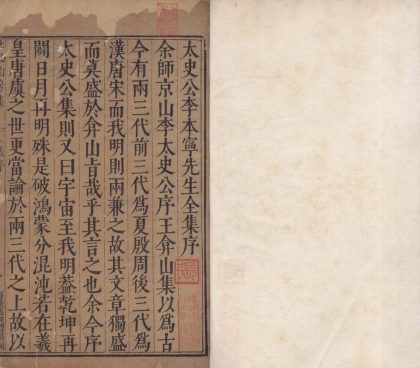 太史公李本寧先生全集序
余師京山李太史公序王弇山集以為古
今有兩三代前三代為夏殷周後三代為
漢唐宋而我明則兩兼之故其文章獨盛
而莫盛於弇山旨哉乎其言之也余今序
太史公集則又曰宇宙至我明葢乾坤再
闢日月再明殊是破鴻蒙分混沌若在羲
皇唐虞之世更當論於兩三代之上故以